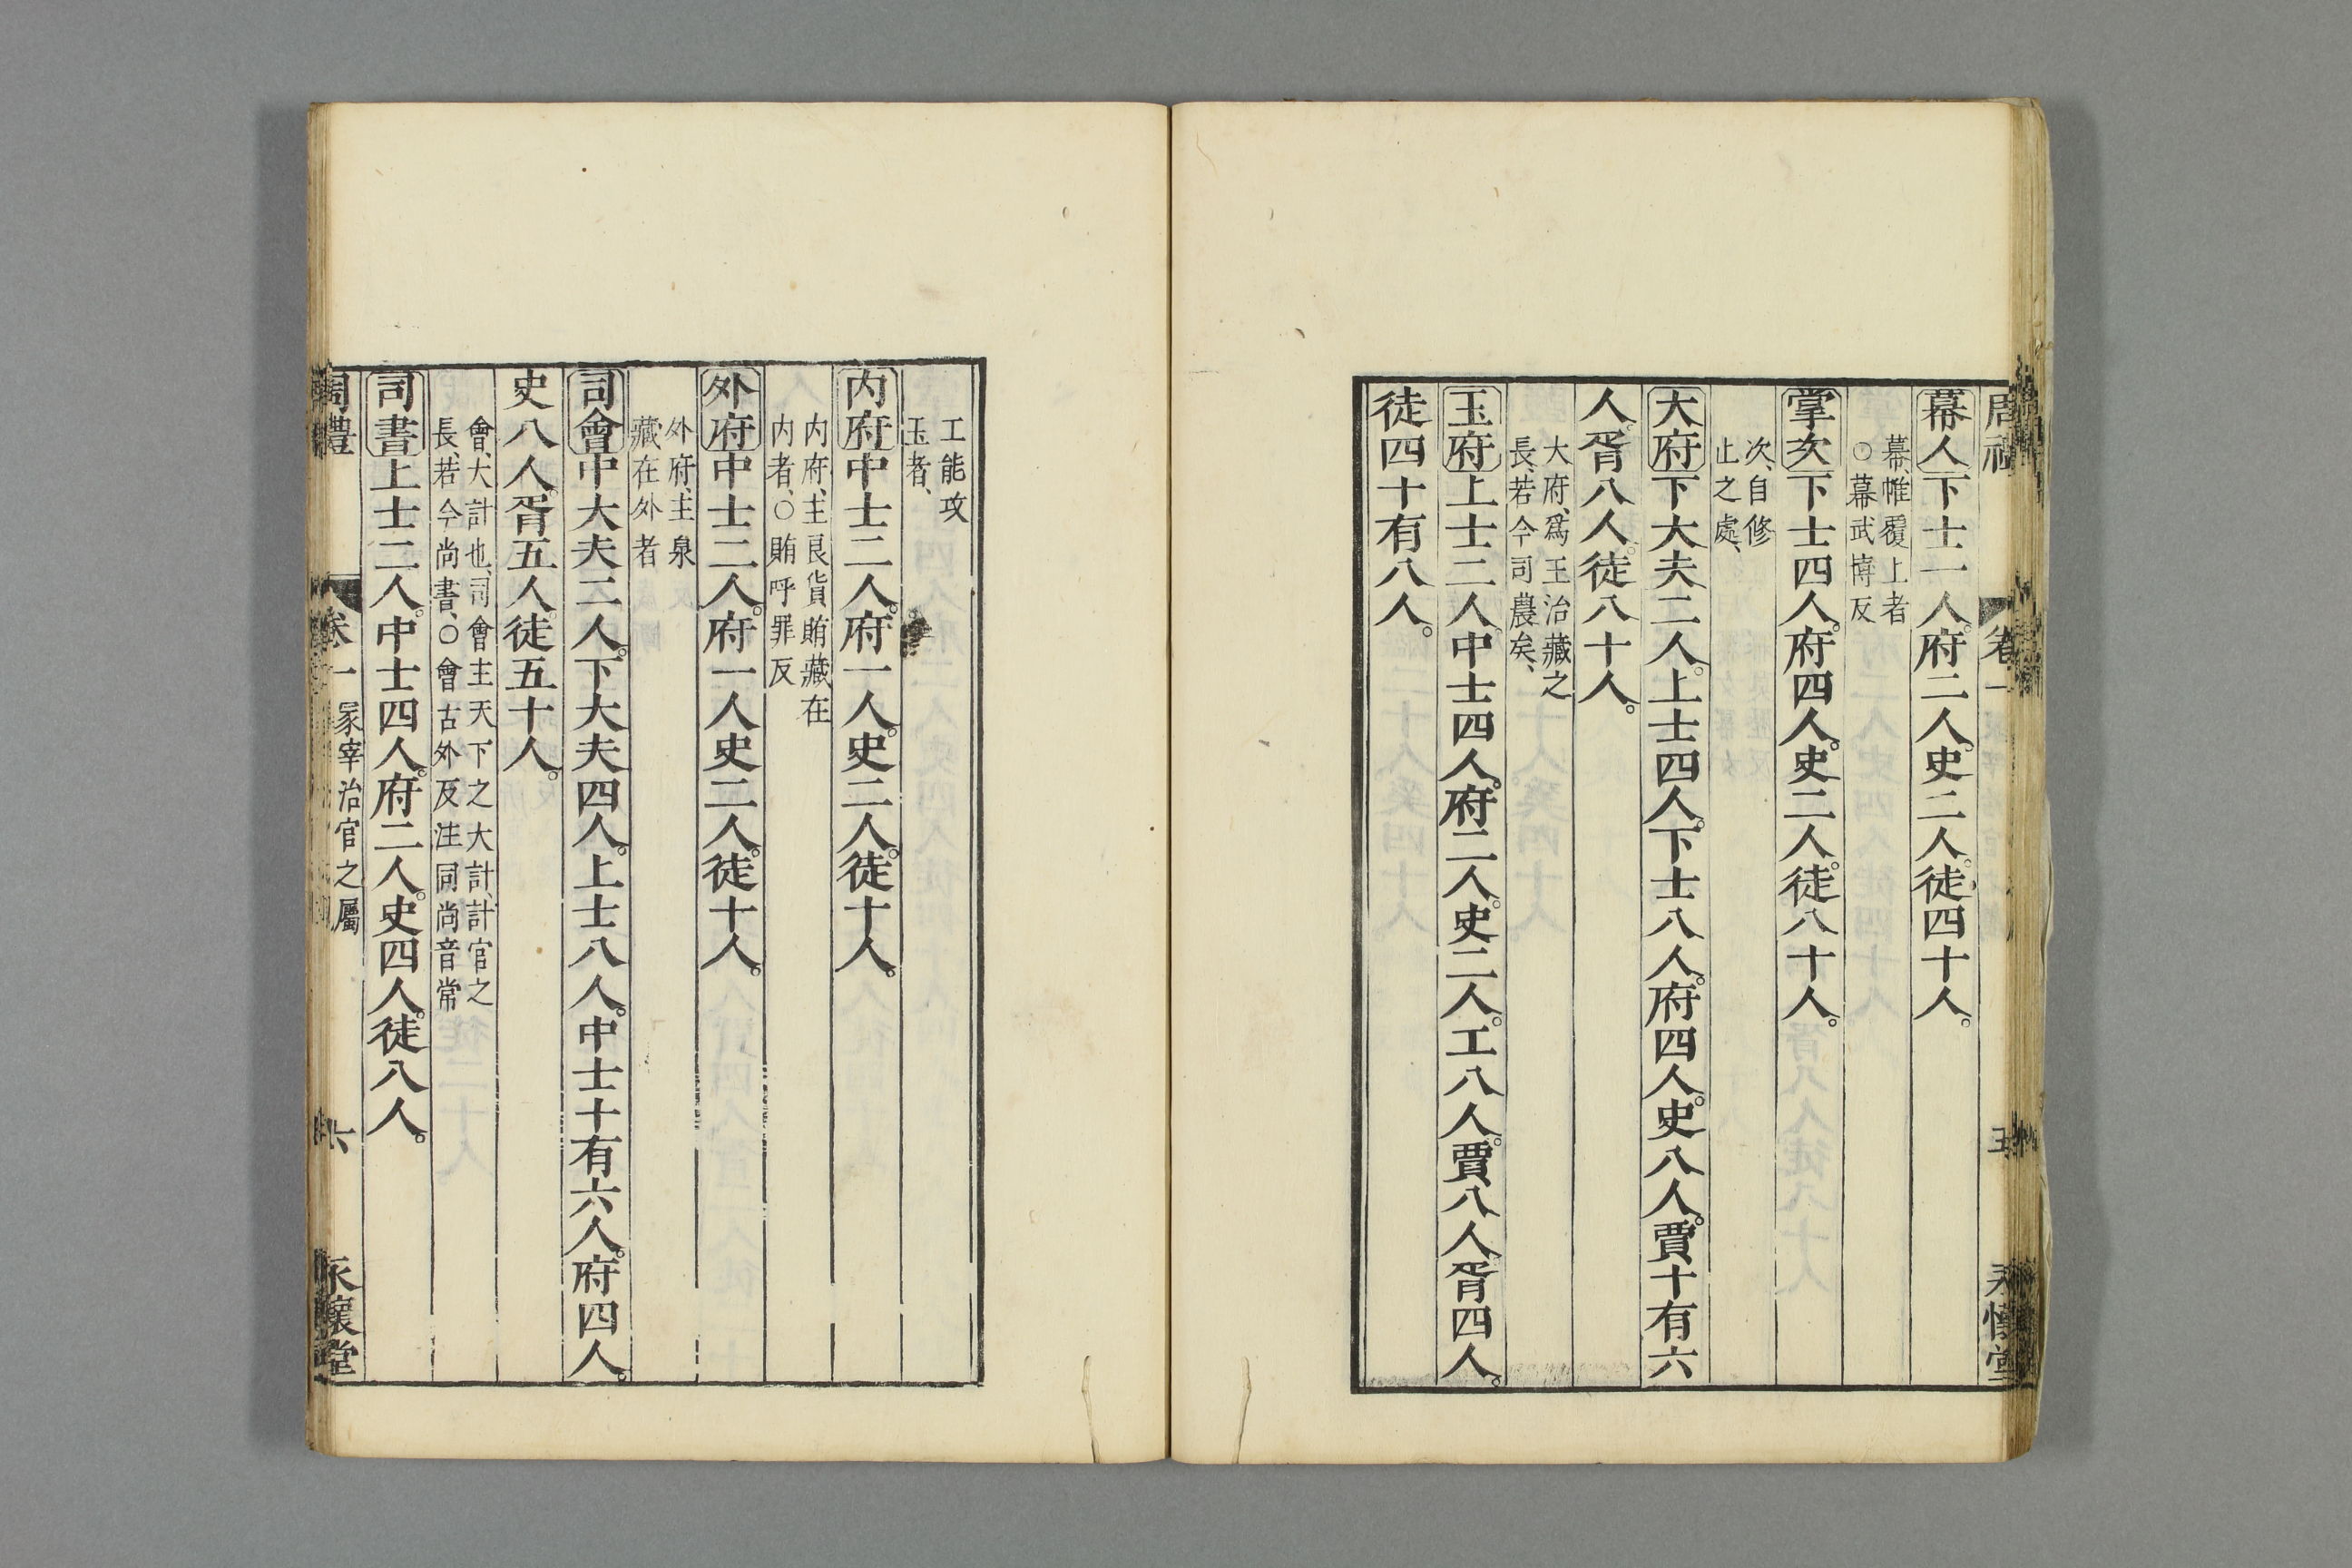 幕人下士一人。府二人。史二人。徒四十人。
幕、帷覆上者
○幕武博反
掌次下士四人。府四人。史二人。徒八十人。
次、自修
止之處、
大府下大夫二人。上士四人。下士八人。府四人。史八人。賈十有六
人。胥八人。徒八十人。
大府、爲王治藏之
長、若今司農矣、
玉府上士二人。中士四人。府二人。史二人。工八人。賈八人。胥四人。
徒四十有八人。
工能攻
玉者、
内府中士二人。府一人。史二人。徒十人。
内府、主良貨賄藏在
内者、○賄呼罪反
外府中士二人。府一人史二人。徒十人。
外府、主泉
藏在外者
司會中大夫二人。下大夫四人。上士八人。中士十有六人。府四人。
史八人。胥五人。徒五十人。
會、大計也、司會主天下之大計、計官之
長、若今尚書、○會古外反注同尚音常
司書上士二人。中士四人。府二人。史四人。徒八人。
周禮 卷一 冢宰治官之屬 六 永懷堂